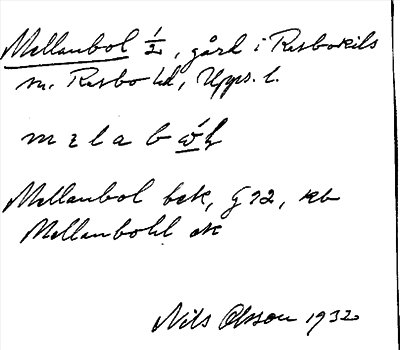 Mellanbol ½, gård i Rasbokils
sn. Rasbo hd, Upps. l.
Mellanbol bek, G 92, kb
Mellanbohl ek
Nils Olsson 1932